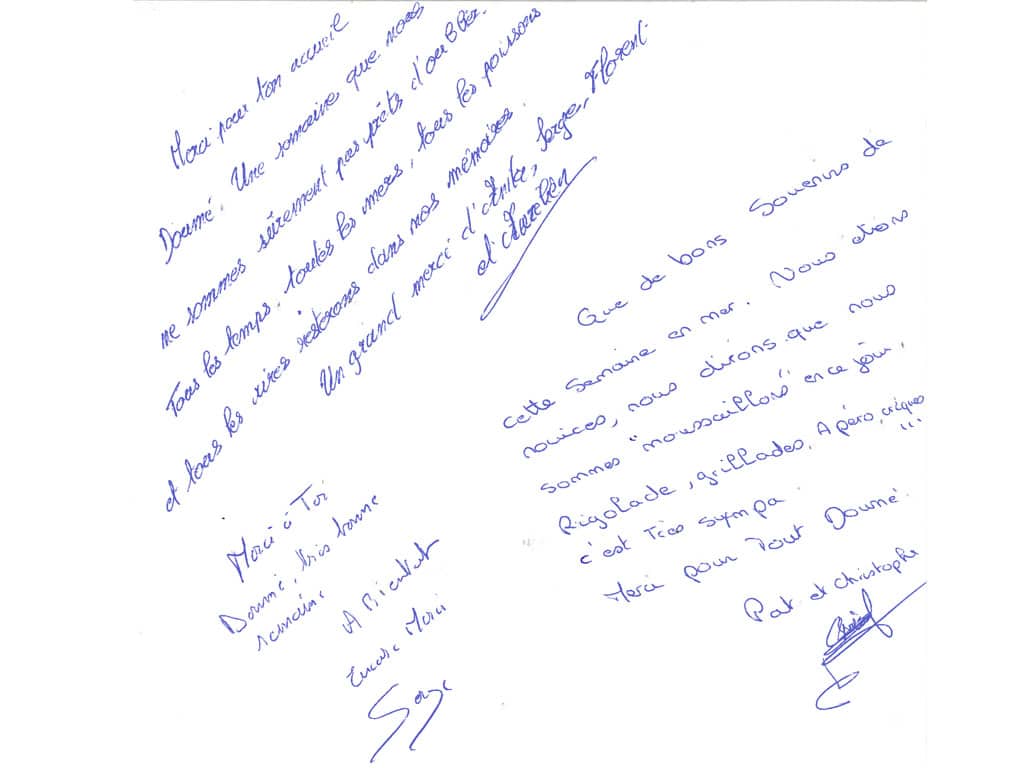 Merci pour ton accueil
Doumé. Une semaine que nous
ne sommes sûrement pas prêts d'oublier.
Tous les temps, toutes les mers, tous les poissons
et tous les rires resterons dans nos mémoires.
Un grand merci d'Anike, Serge, Florent
et d'Aurélien
Merci à Toi
Doumé, très bonne
semaine
A Bientôt
Encore Merci
Serge
Que de bons souvenirs de
cette semaine en mer. Nous étions
novices, nous dirons que nous
sommes "moussaillons" en ce jour,
Rigolade, grillades, Apéro, criques
c'est très sympa !!!
Merci pour Tout Doumé.
Pat et Christophe